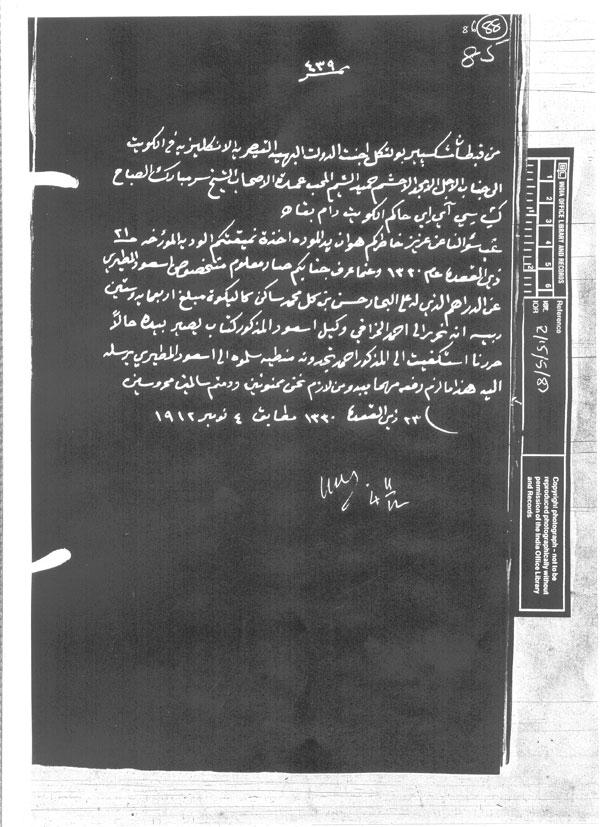 88
86
85
نمبر ٤٣٩
من قبطان شكسپير بولتكل اجنت الدولت البهية القيصرية الانكليزية في الكويت
الى جناب الاجل الامجد الافخم حميد الشيم المحب عمدة الاصحاب الشيخ سر مبارك الصباح
كي سي آئي اي حاكم الكويت دام بقاه
غب سؤالنا عن عزيز خاطركم هو ان يد المودة اخذة نميقتكم الودية المؤرخة ٢١
ذي القعدة عام ١٣٣٠ وعما عرف جنابكم صار معلوم مخصوص اسعود المطيري
عن الدراهم الذي له البحار حسن بن محمد ساكن كاليكوة مبلغ اربعمايه وستين
ربيه انه تحرير الى احمد الخرافي وكيل اسعود المذكور كتاب يصير بيده حالاً
حررنا استكفيت الى المذكور احمد تجدونه يسلمه الى اسعود المطيري يرسله
اليه هذا ما لزم رفعه مهما يبدو من لازم نحن ممنونين ودمتم سالمين محروسين
٢٣ ذي القعدة ١٣٣٠ مطابق ٤ نومبر ١٩١٢
4/11/12
INDIA OFFICE LIBRARY AND RECORDS
1 2 3 4 5 6
1 2
Reference
IOR
R/15/5/18
Copyright photograph - not to be
reproduced photographically without
permission of the India Office Library
and Records